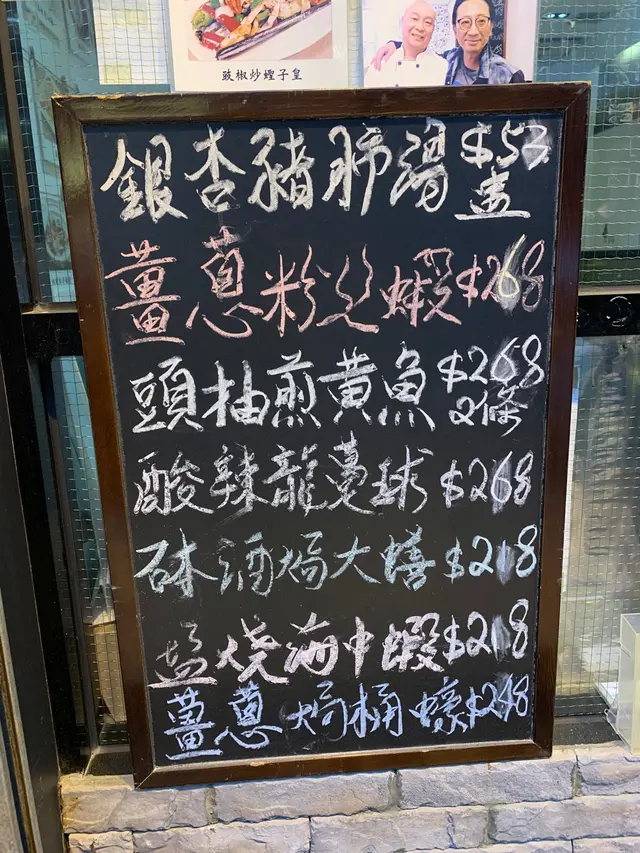 豉椒炒蟶子皇
銀杏豬肺湯 $53
盅
薑蔥粉絲蝦 $268
頭抽煎黄魚 $268
2條
酸辣龍躉球 $268
砵酒焗大蠔 $218
塩燒海中蝦 $218
薑蔥焗桶蠔 $248